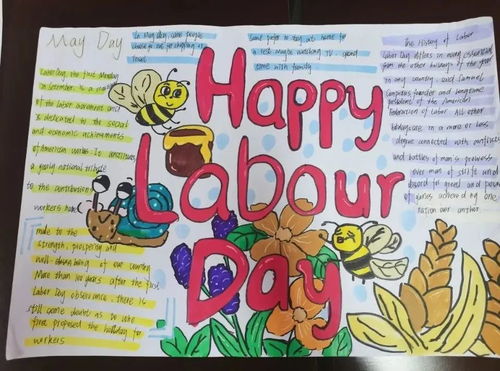 May Day
In May Day, some people
choose to go for shopping or
travel
some prefer to stay at home for
a rest. Maybe watching TV, spend
time with family
The History of Labor
Labor Day, the first Monday
in September, is a
of the labor movement and
is dedicated to the social
and economic achievements
of American workers. It constitutes
a yearly national tribute
to the contributions
workers have
made to the
strength, prosperity and
well-being of our country
More than 100 years after the first
Labor Day observance, there is
still some doubt as to who
first proposed the holiday for
workers
Labor Day differs in many essential
from the other holidays of the year
in any country said Samuel
Gompers, founder and longtime
president of the American
Federation of Labor. All other
holidays are in a more or less
degree connected with conflicts
and battles of man's prowess
over man of strife and
discord for greed and power
of glories achieved by one
nation over another
Happy
Labour
Day